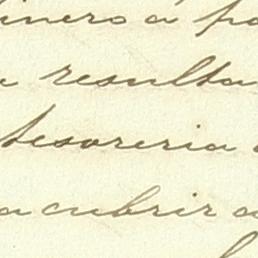 inero á pa
e resulta
tesoreria
a cubrir a